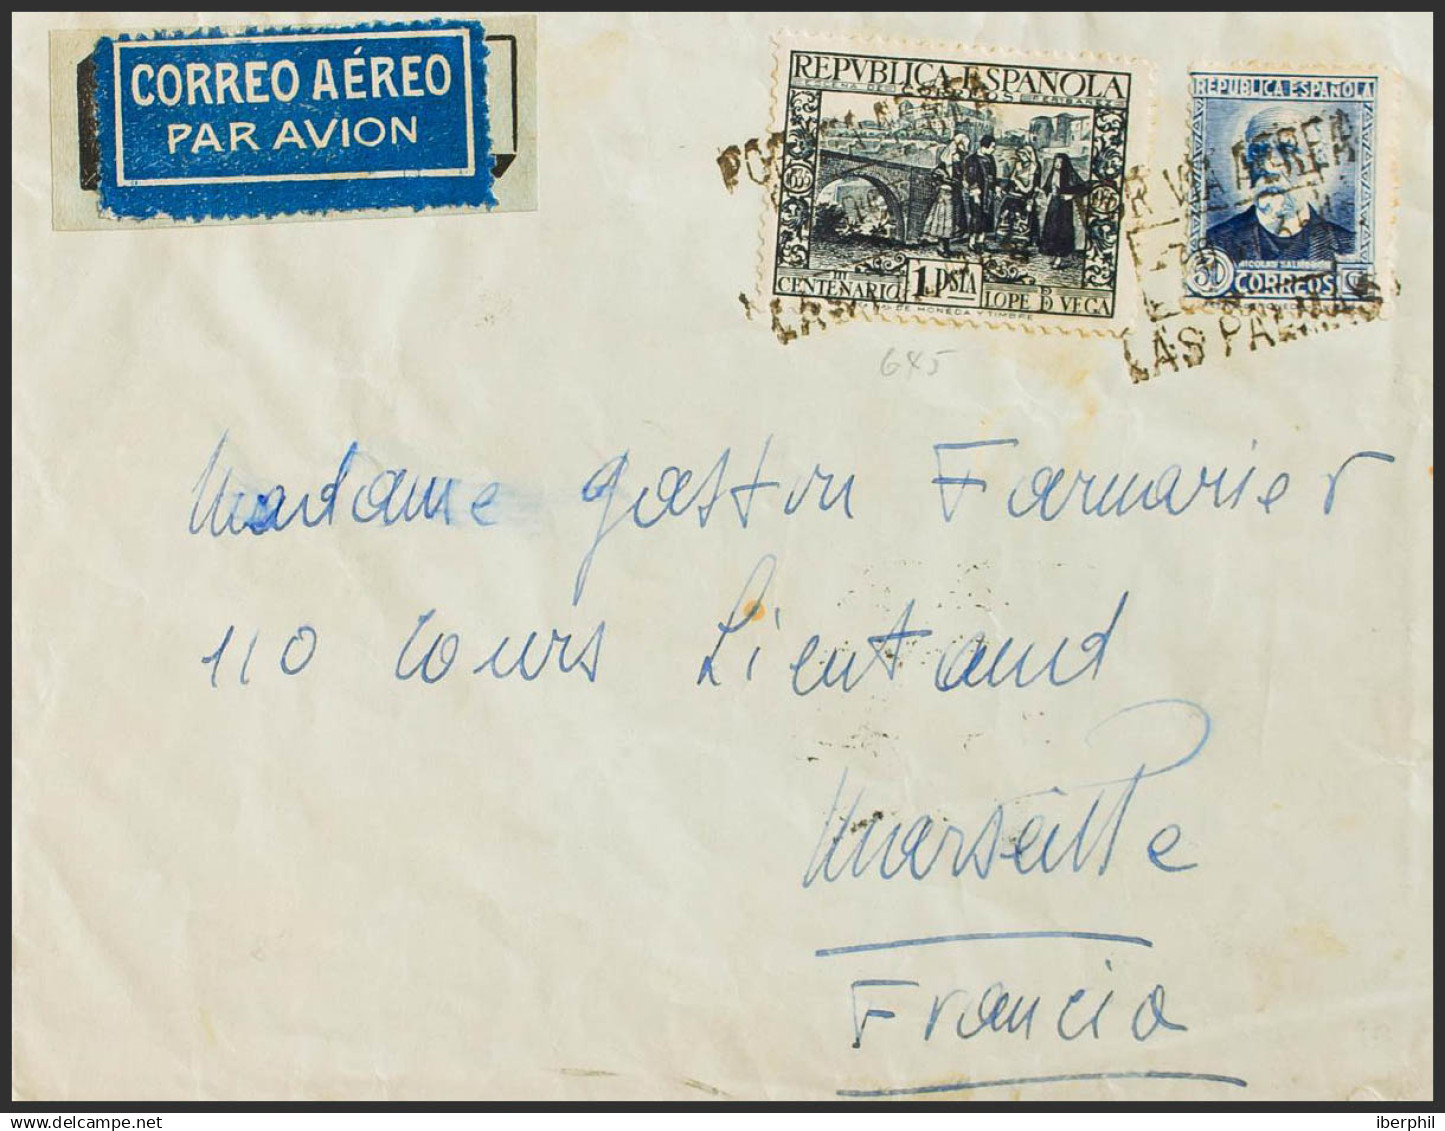 CORREO AÉREO
PAR AVION
REPVBLICA ESPAÑOLA
III
CENTENARIO
1 PSTA
LOPE D VEGA
REPUBLICA ESPAÑOLA
NICOLAS SALMERON
50
CORREOS
POR VIA AEREA
LAS PALMAS
POR VIA AEREA
LAS PALMAS
645
Madame Gaston Farnarier
110 Cours Lieutaud
Marseille
Francia
iberphil